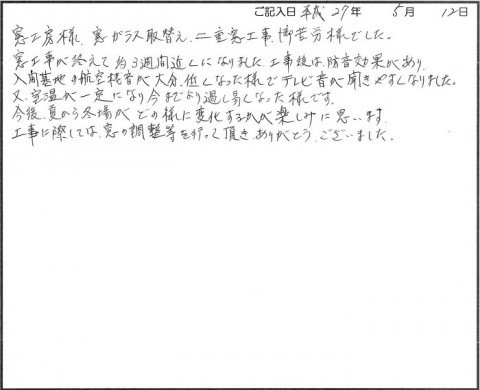 ご記入日 平成 27年 5月 12日
窓工房様、窓ガラス取替え、二重窓工事、御苦労様でした。
窓工事が終えて約3週間近くになりました。工事後は防音効果があり、
入間基地の航空機音が大分、低くなった様でテレビ音が聞きやすくなりました。
又、室温が一定になり今までより過し易くなった様です。
今後、夏から冬場がどの様に変化するかが楽しみに思います。
工事に際しては、窓の調整等を行って頂き、ありがとうございました。